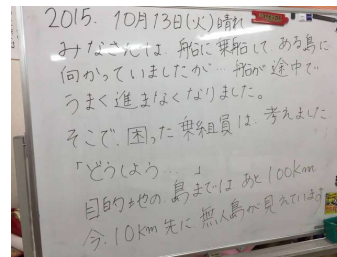 2015. 10月13日(火)晴れ
みなさんは、船に乗船して、ある島に
向かっていましたが… 船が途中で
うまく進まなくなりました。
そこで、困った乗組員は、考えました
「どうしよう…」
目的地の島まではあと100km
今、10km先に無人島が見えています